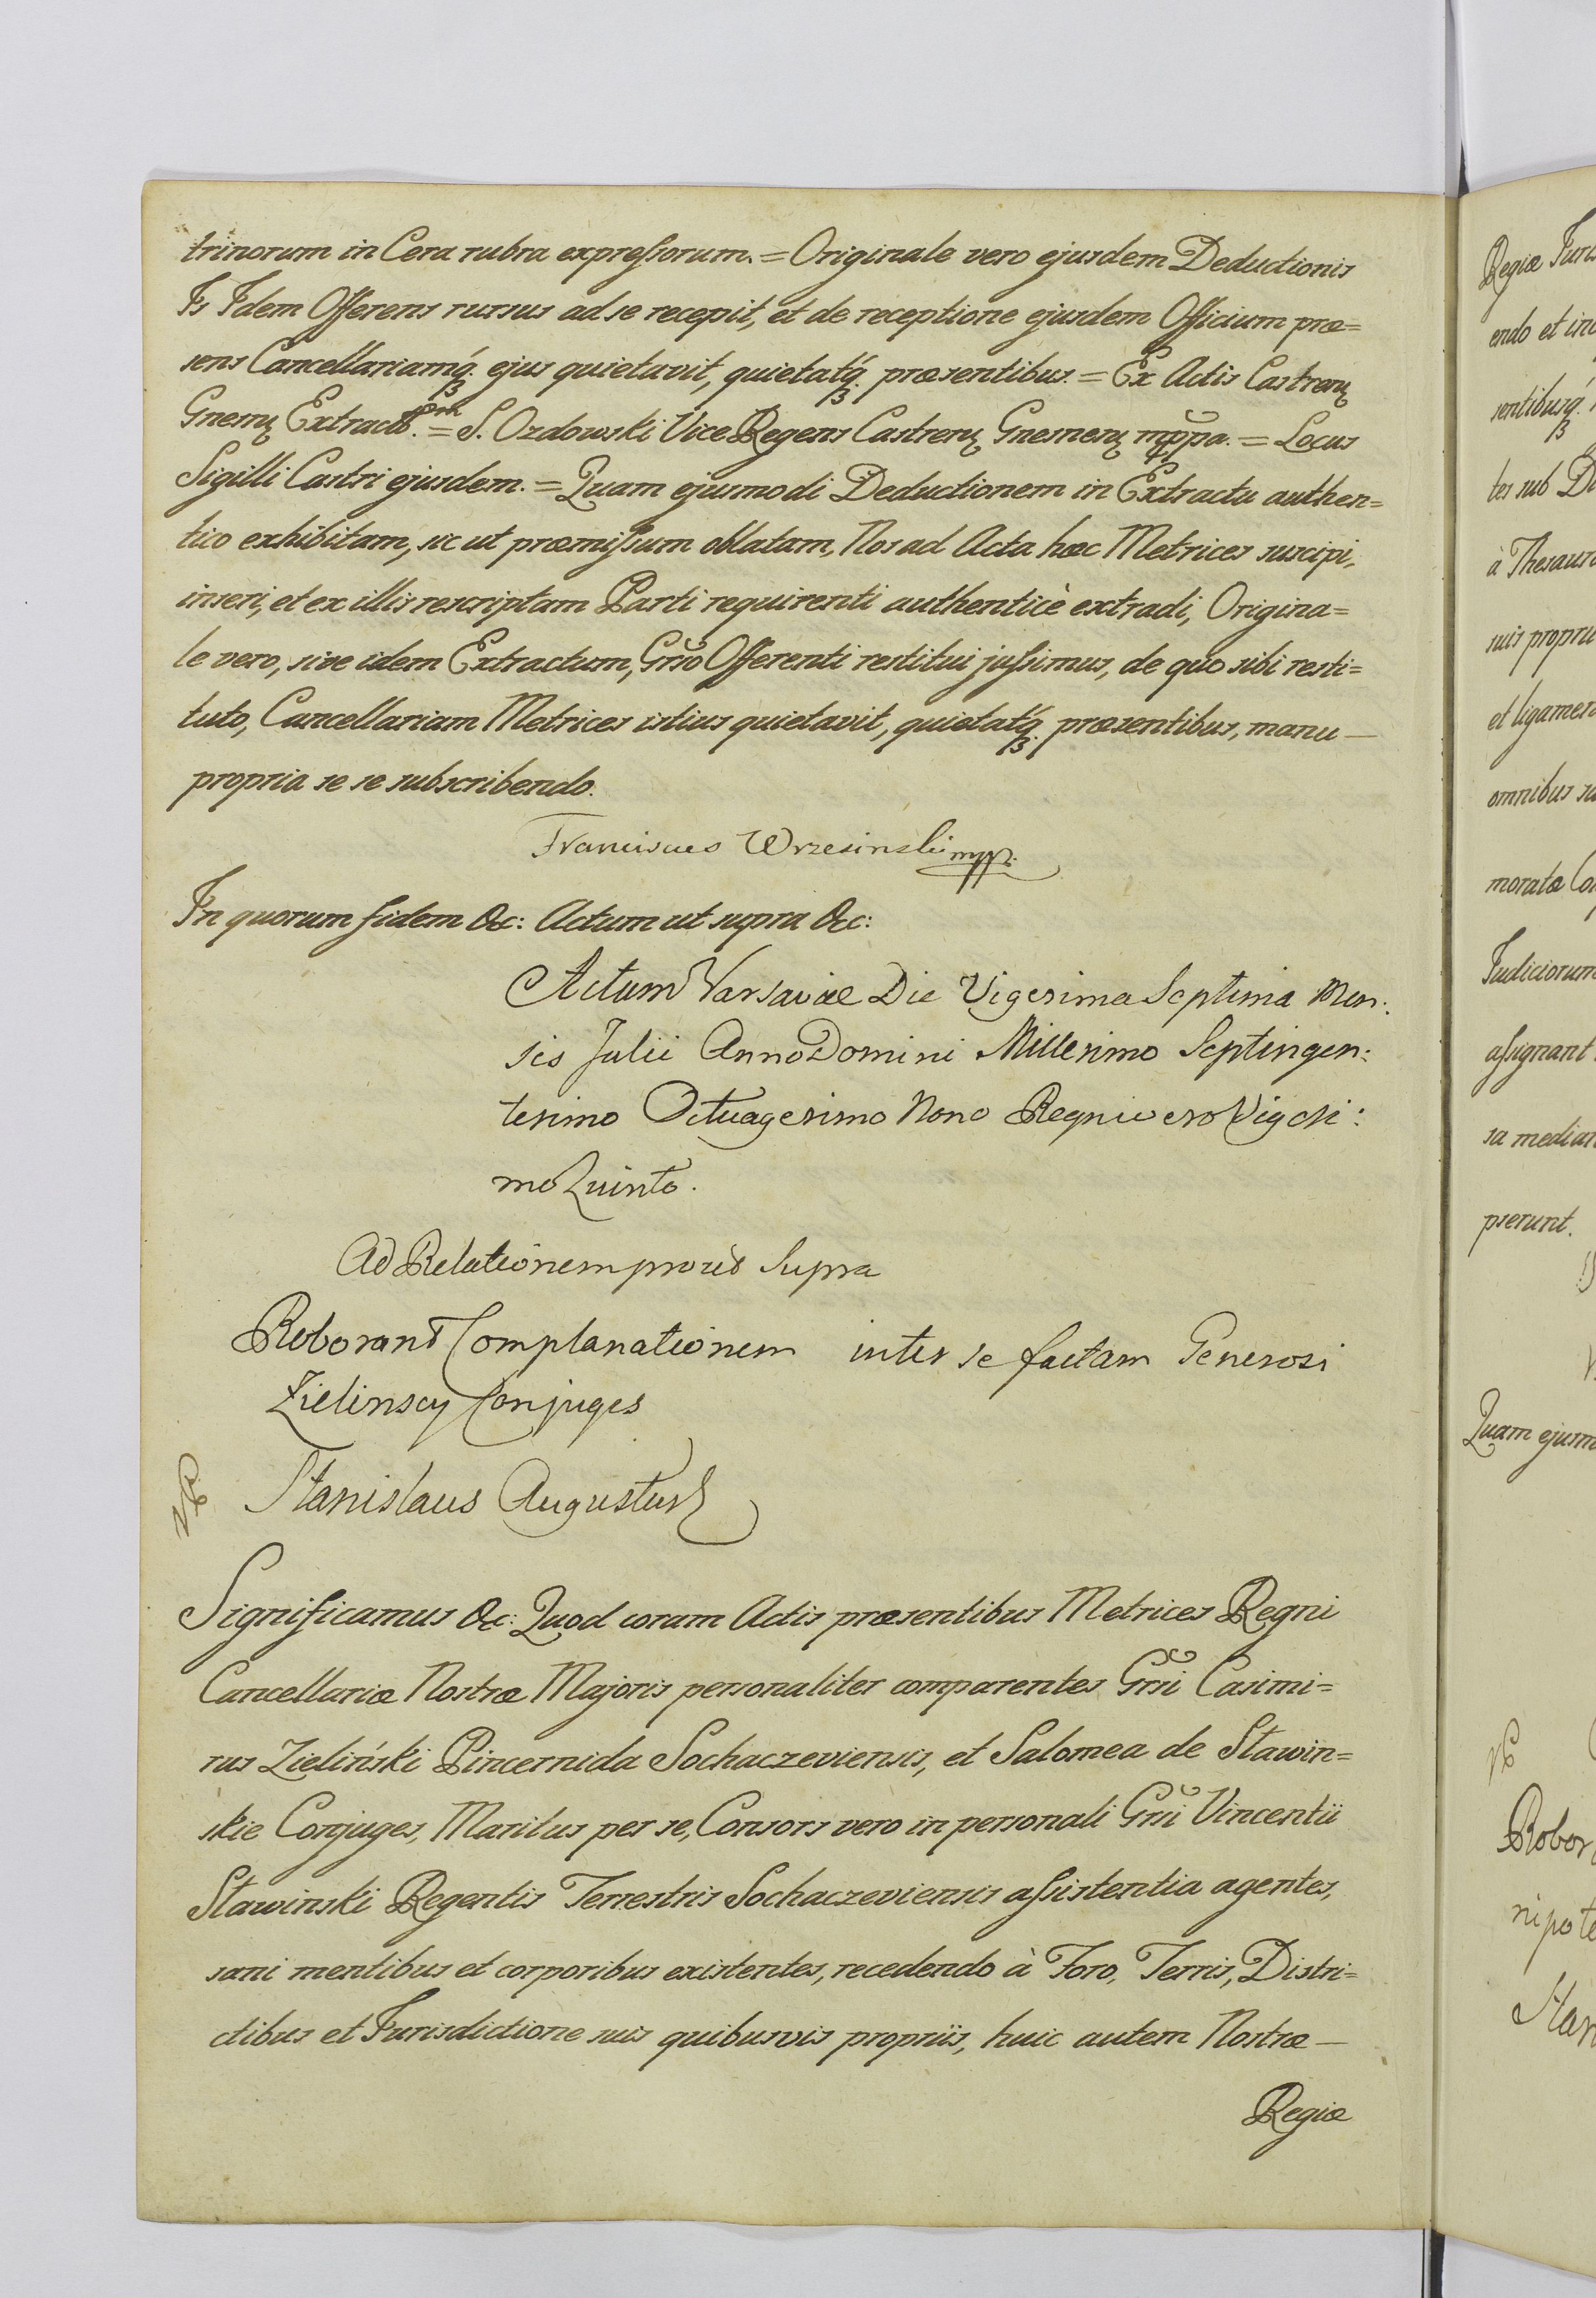 trinorum in Cera rubra expressorum. = Originale vero ejusdem Deductionis
Is Idem Offerens rursus ad se recepit, et de receptione ejusdem Officium præ=
sens Cancellariamq́ꝫ. ejus quietavit, quietatq́ꝫ. præsentibus. = Ex Actis Castren̄
Gnesn̄ Extract. = S. Ozdowski Vice Regens Castren̄ Gnesnen̄ mppa. = Locus
Sigilli Castri ejusdem. = Quam ejusmodi Deductionem in Extractu authen=
tico exhibitam, sic ut præmissum oblatam, Nos ad Acta hæc Metrices suscipi,
inseri, et ex illis rescriptam Parti requirenti authenticè extradi, Origina=
le vero, sive idem Extractum, Grso Offerenti restitui jussimus, de quo sibi resti=
tuto, Cancellariam Metrices istius quietavit, quietatq́ꝫ. præsentibus, manu —
propria se se subscribendo.
Franciscus Wrzesinski mpp.
In quorum fidem &c: Actum ut supra &c:
Actum Varsaviæ Die Vigesima Septima Men:
sis Julii Anno Domini Millesimo Septingen:
tesimo Octuagesimo Nono Regni vero Vigesi:
mo Quinto.
Ad Relationem prout supra
Roborant Complanationem inter se factam Generosi
Zielinscy Conjuges
Stanislaus Augustus R
Significamus &c: Quod coram Actis præsentibus Metrices Regni
Cancellariæ Nostræ Majoris personaliter comparentes Grsi Casimi=
rus Zieliński Pincernida Sochaczeviensis, et Salomea de Sławin=
skie Conjuges, Maritus per se, Consors vero in personali Grsi Vincentii
Sławinski Regentis Terrestris Sochaczeviensis assistentia agentes,
sani mentibus et corporibus existentes, recedendo à Foro, Terris, Distri=
ctibus et Jurisdictione suis quibusvis propriis, huic autem Nostræ —
Regiæ
Regiæ
endo et
sentibusq́ꝫ.
tes sub
à
suis
et
omnibus
moratæ
Judiciorum
assignant
sa
pserunt.
Quam